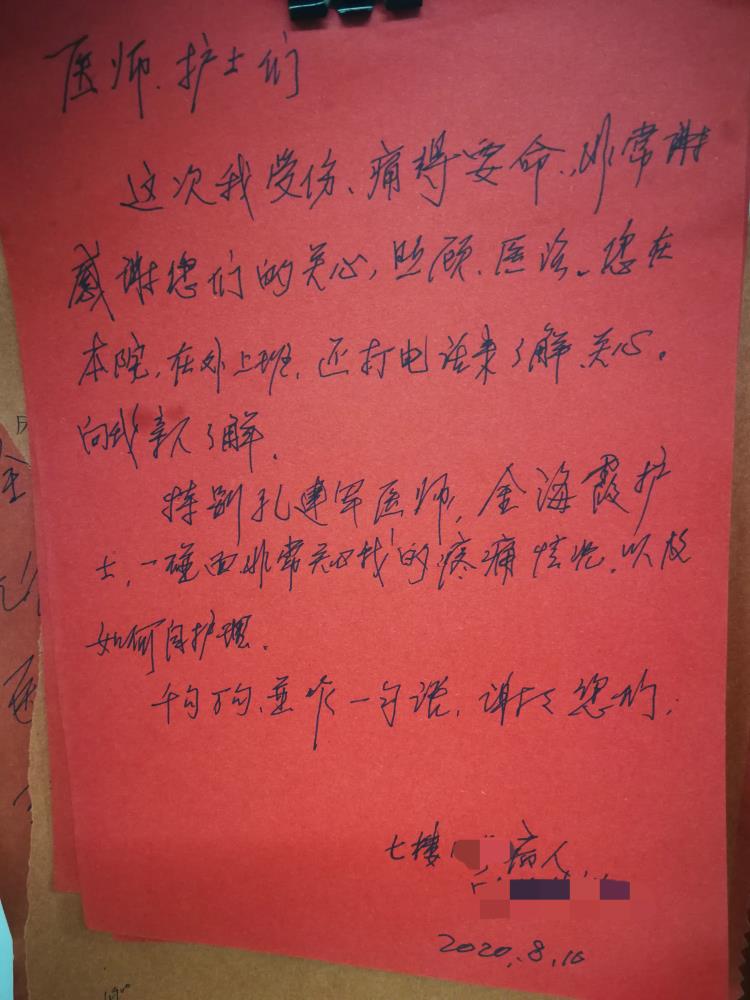 医师、护士们
这次我受伤、痛得要命、非常谢
感谢您们的关心,照顾、医治。您在
本院,在外上班,还打电话来了解、关心。
向我亲人了解.
特别孔建军医师,金海霞护
士,一碰面非常关心我的疼痛情况,以及
如何自护理.
千句万句、并作一句话,谢谢您们.
七楼 病人
2020.8.16